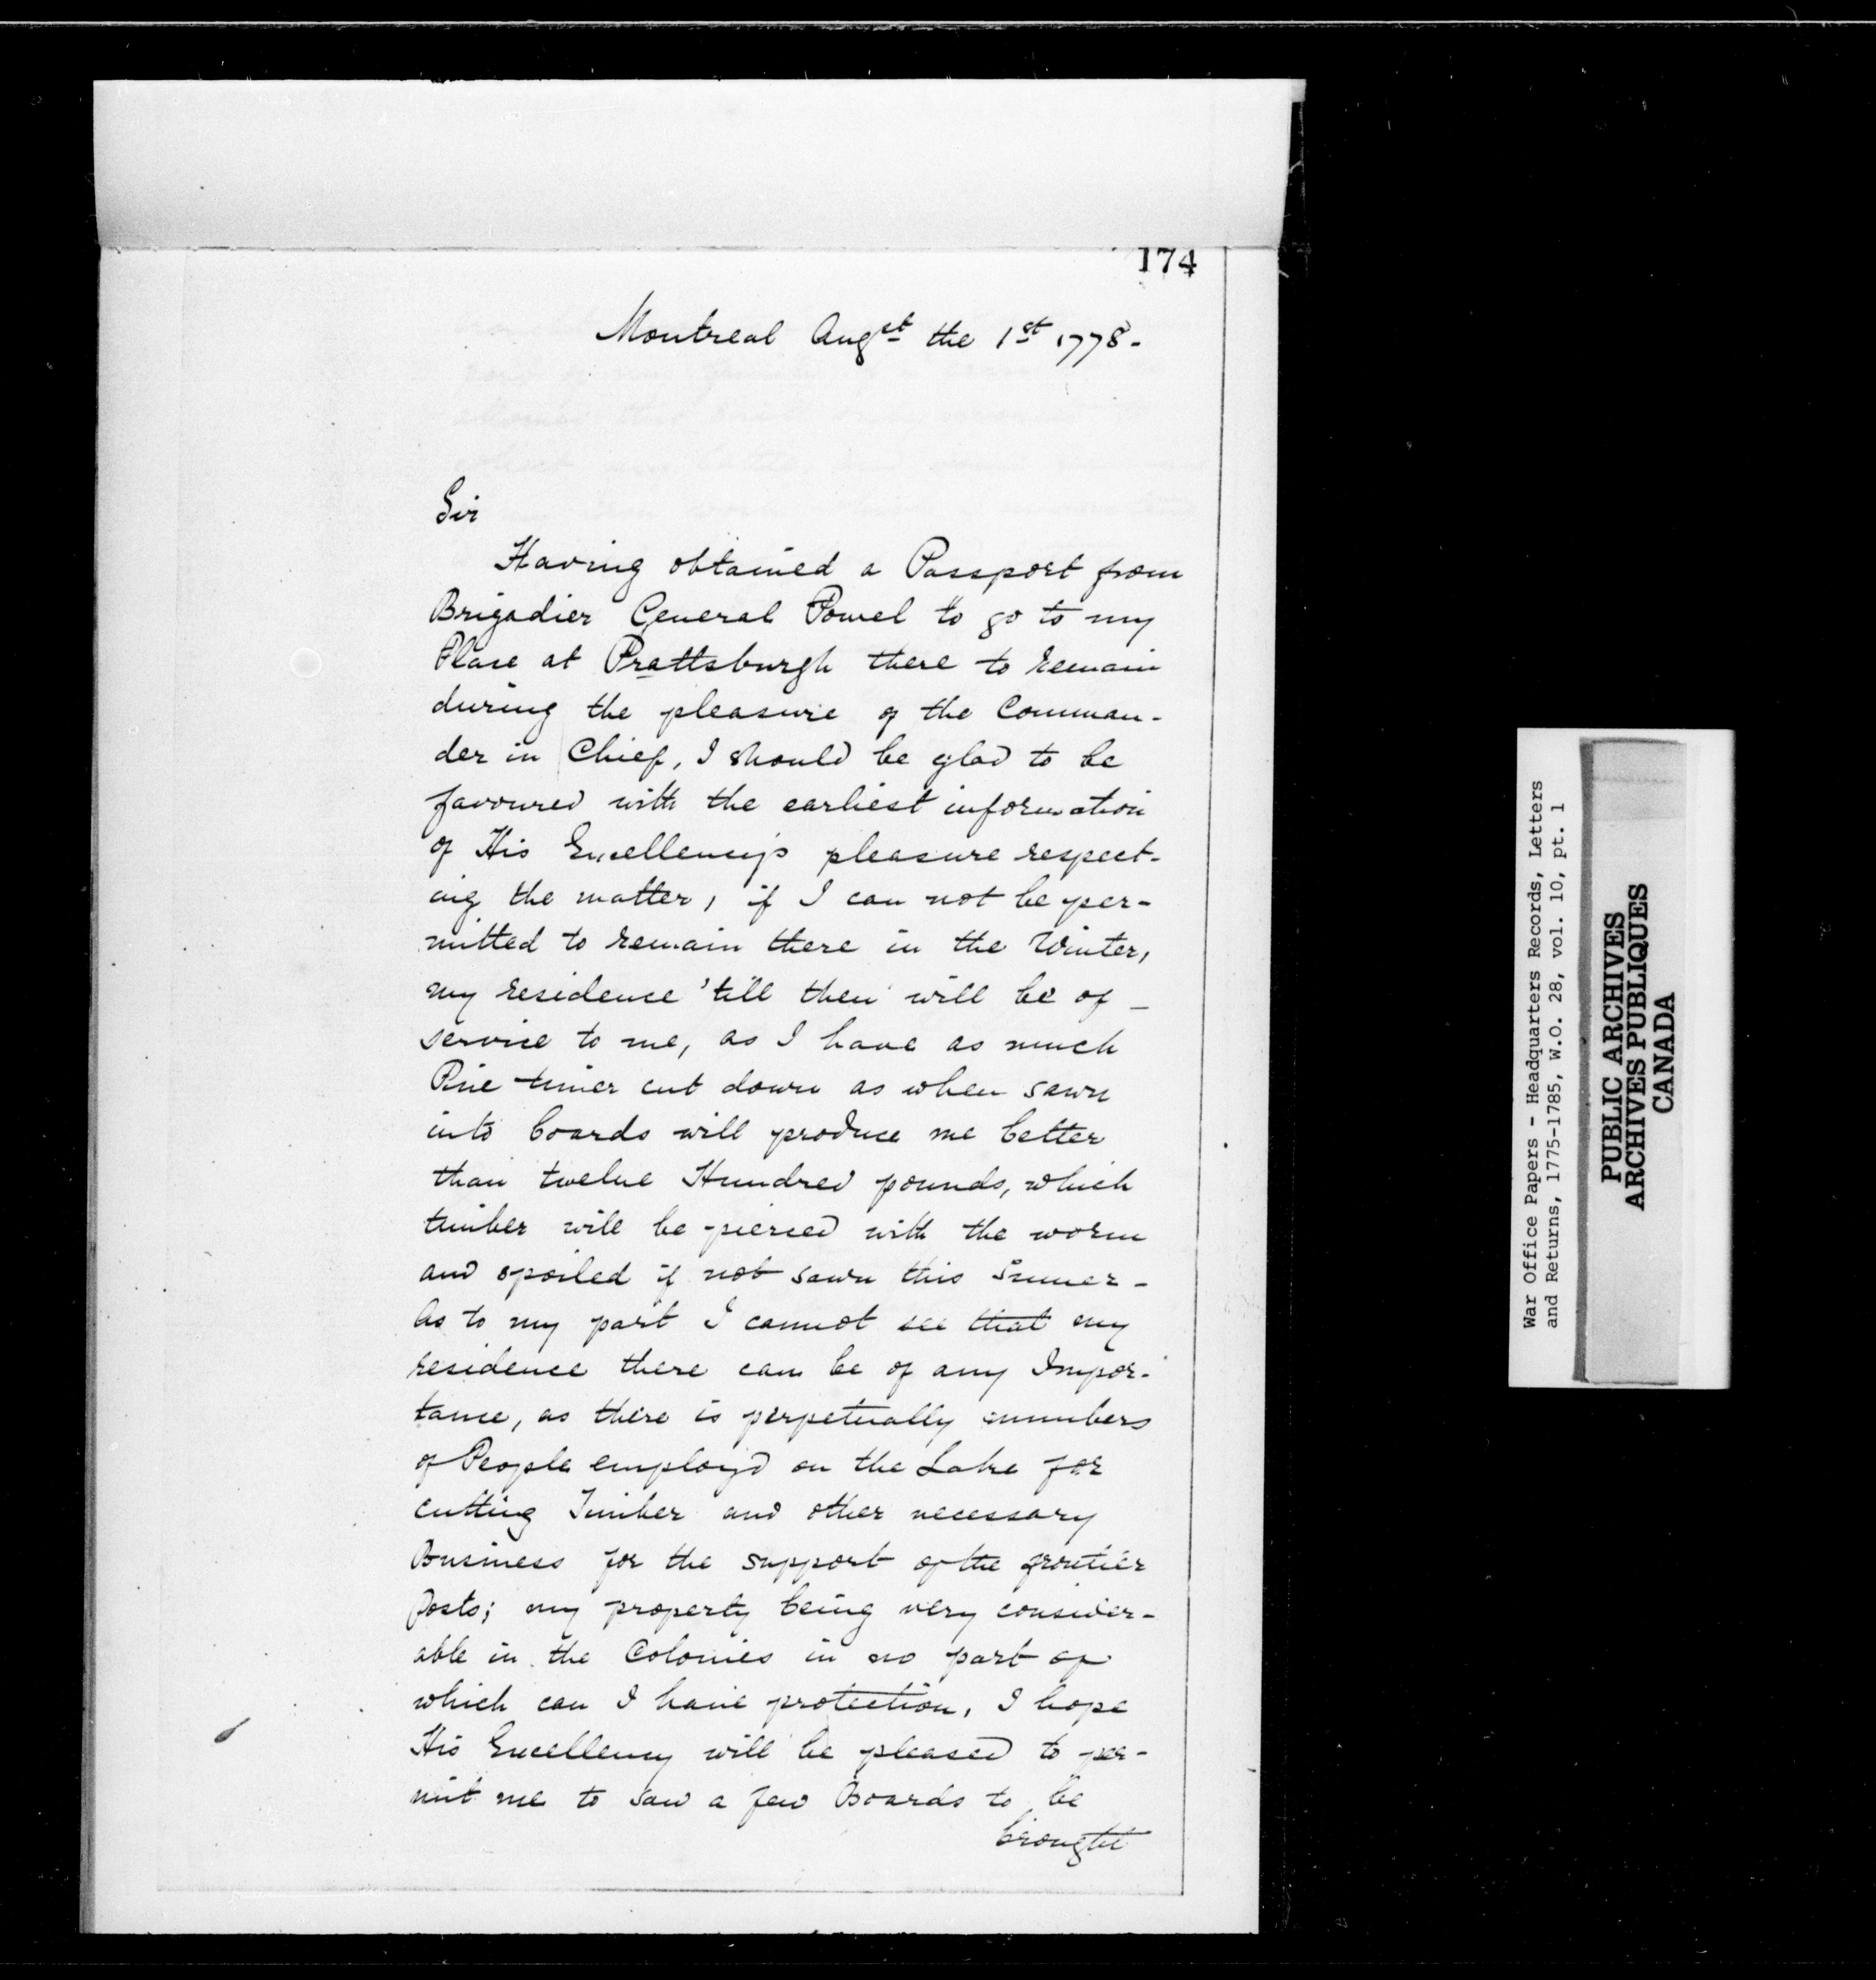 174
Montreal Augst the 1st 1778-
Sir
Having obtained a Passport from
Brigadier General Powel to go to my
Place at Prattsburgh there to remain
during the pleasure of the Comman-
der in Chief, I should be glad to be
favoured with the earliest information
of His Excellency's pleasure respect-
ing the matter, if I can not be per-
mitted to remain there in the Winter,
my residence 'till then will be of -
service to me, as I have as much
Pine timer cut down as when sawn
into boards will produce me better
than twelve Hundred pounds, which
timber will be pierced with the worm
and spoiled if not sawn this Summer -
As to my part I cannot see that my
residence there can be of any Impor-
tance, as there is perpetually numbers
of People employ'd on the Lake for
cutting Timber and other necessary
Business for the support of the frontier
Posts; my property being very consider-
able in the Colonies in no part of
which can I have protection, I hope
His Excellency will be pleased to per-
mit me to saw a few Boards to be
brought
War Office Papers - Headquarters Records, Letters
and Returns, 1775-1785, W.O. 28, vol. 10, pt. 1
PUBLIC ARCHIVES
ARCHIVES PUBLIQUES
CANADA